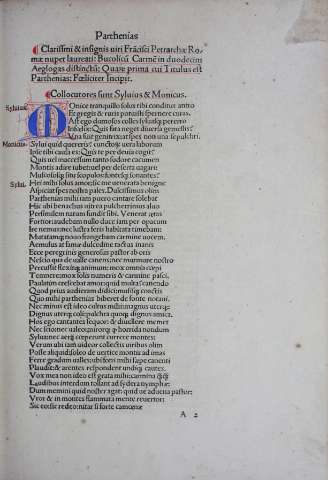 Parthenias
Clarissimi & insignis uiri Frãcisci Petrarchæ Ro-
mæ nuper laureati: Bucolicũ Carmẽ in duodecim
Aeglogas distinctũ: Quare prima cui Titulus est
Parthenias: Fœliciter Incipit.
Collocutores sunt Syluius & Monicus.
Syluius.
Monice tranquillo solus tibi conditus antro
Et gregis & ruris potuisti spernere curas.
Ast ego dumosos colles syluasq; pererro
Infœlix: Quis fata neget diuersa gemellis?
Vna fuit genitrix: at spes non una sepulchri.
Monicus.
Sylui quid quereris? cunctorũ uera laborum
Ipse tibi causa es: Quis te per deuia cogit?
Quis uel inaccessum tanto sudore cacumen
Montis adire iubet: uel per deserta uagari:
Muscososq; situ scopulos: fontesq; sonantes?
Sylui.
Hei mihi solus amor: sic me uenerata benigne
Aspiciat spes nostra pales. Dulcissimus olim
Parthenias mihi iam puero cantare solebat
Hic ubi benachus uitrea pulcherrimus aluo
Persimilem natum fundit sibi. Venerat ætas
Fortior: audebam nullo duce iam per opacum
Ire nemus: nec lustra feris habitata timebam:
Mutatamq; nouo frangebam carmine uocem.
Aemulus at fumæ dulcedine tactus inanis
Ecce peregrinis generosus pastor ab oris
Nescio qua de ualle canens: nec murmure nostro
Percussit flexitq; animum: mox omnia cœpi
Temnere: mox solis numeris & carmine pasci.
Paulatim crescebat amor: quid multa? canendo
Quod prius audieram didici: musisq; coniux
Quo mihi parthenias biberet de fonte notaui.
Nec minus est ideo cultus mihi: magnus uterq;:
Dignus uterq; coli: pulchra quoq; dignus amica.
Hos ego cantantes sequor: & diuellere memet
Nec scio: nec ualeo: miror q; horrida nondum
Syluæ: nec aerii cœperunt currere montes:
Verum ubi iam uideor collectis uiribus olim
Posse aliquid: soleo de uertice montis ad imas
Ferre gradum ualles: ubi fons mihi sæpe canenti
Plaudit: & arentes respondent undiq; cautes.
Vox mea non ideo est grata mihi: carmina q̃q̃
Laudibus interdum tollant ad sydera nymphæ:
Dum memini quid noster agat: quid ue aduena pastor:
Vror & in montes flammata mente reuertor:
Sic eo: sic redeo: nitar si forte camœnæ
A 2